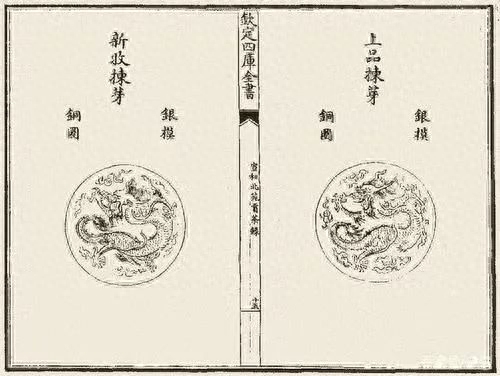 上品揀芽
銀模
銅圈
欽定四庫全書
宣和北苑貢茶錄
新收揀芽
銀模
銅圈